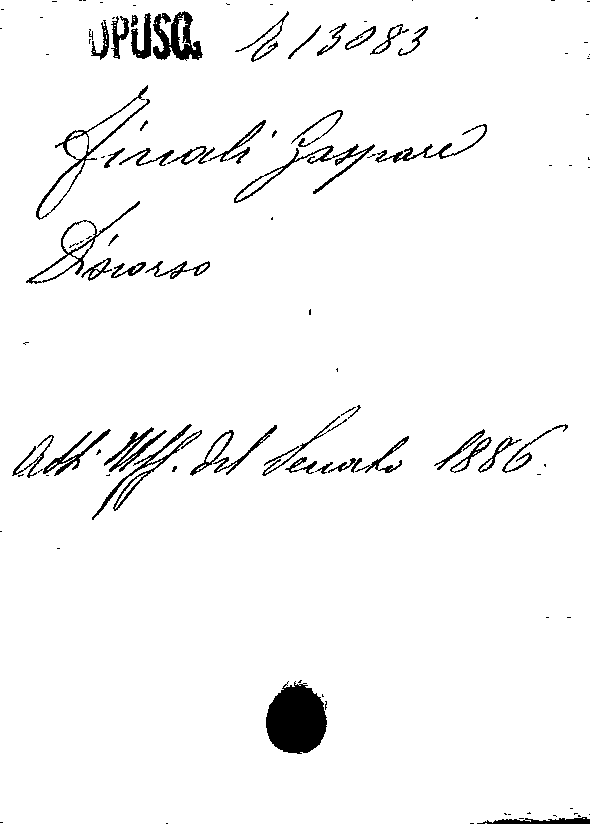 OPUSC. E 13083
Finali Gaspare
Discorso
Atti Uff. del Senato 1886.